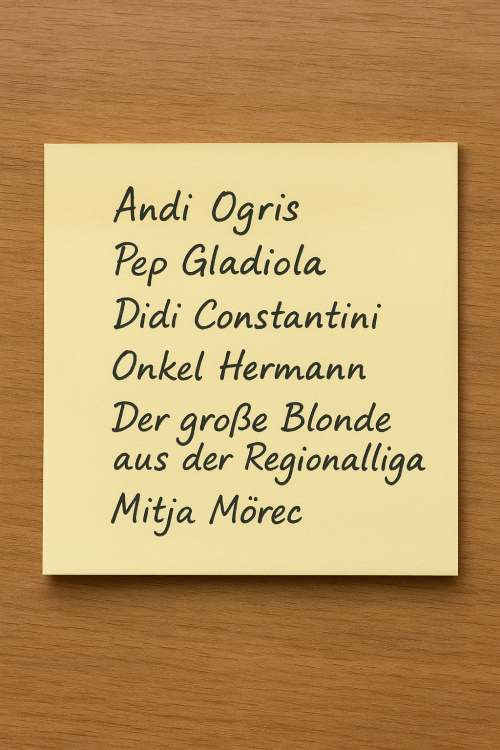 Andi Ogris
Pep Gladiola
Didi Constantini
Onkel Hermann
Der große Blonde
aus der Regionalliga
Mitja Mörec